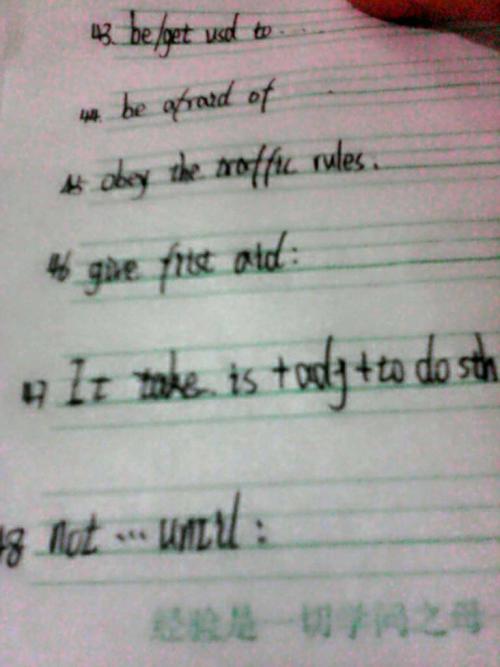 43. be/get usd to ....
44. be afraid of
45 obey the traffic rules.
46 give first aid:
47 It take is + adj + to do sth
48 not ... until :
经验是一切学问之母